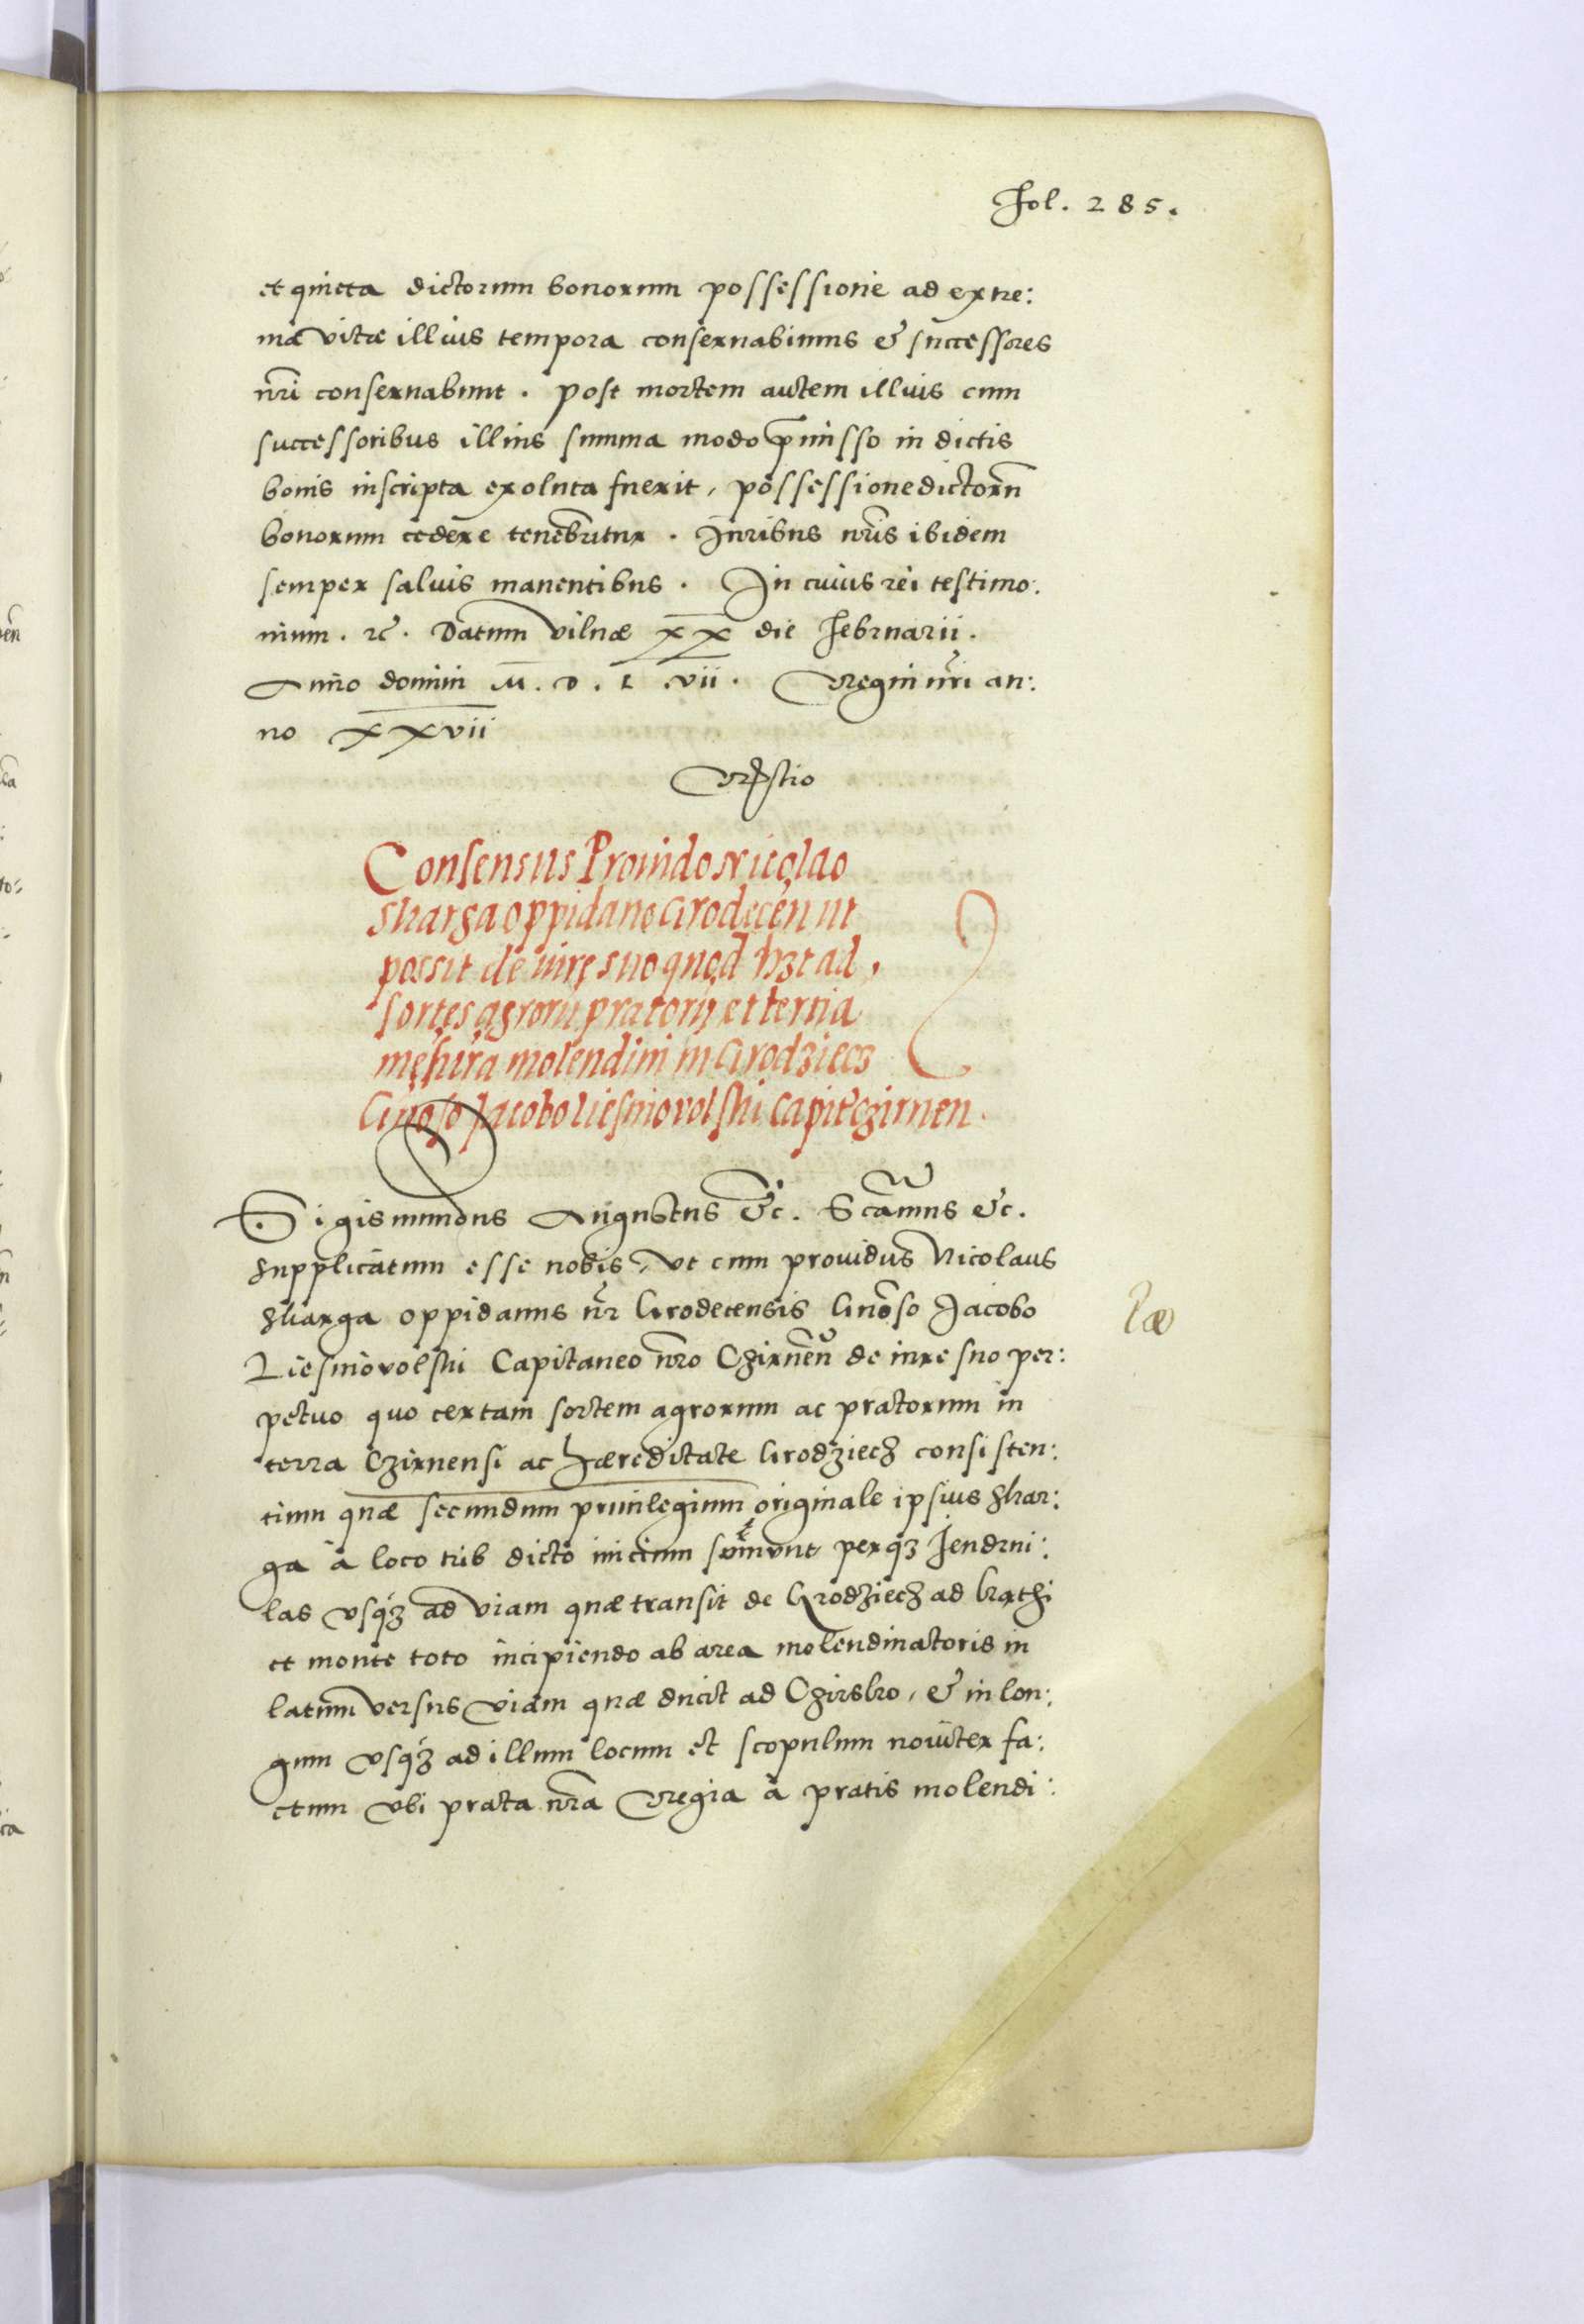 Fol. 285.
et quieta dictorum bonorum possessione ad extre:
ma vitæ illius tempora conseruabimus & successores
nri conseruabunt. post mortem autem illius cum
successoribus illius summa modo pmisso in dictis
bonis inscripta exoluta fuerit, possessione dictorū
bonorum cedere tenebūtur. Juribus nris ibidem
semper saluis manentibus. In cuius rei testimo:
nium. rc. Datum Vilnæ XX die Februarii.
Anno domini M.D.L.vii. Regni nri an:
no XXvii
Consensus Prouido Nicolao
Skarga oppidano Grodecen ut
possit de iure suo quod hzt ad
sortes agrorū pratorū et tertia
mesura molendini in Grodziecz
Gnoso Jacobo Liesniovolski Capit Czirnen.
Sigismundus Augustus &c. Scamus &c.
supplicatum esse nobis, vt cum prouidus Nicolaus
Skarga oppidanus nr Grodecensis Gnoso Jacobo
Liesniovolski Capitaneo nro Czirnēn de iure suo per:
petuo quo certam sortem agrorum ac pratorum in
terra Czirnensi ac hæreditate Grodziecz consisten:
tium quæ secundum priuilegium originale ipsius Skar:
ga à loco trib dicto initium sumunt perqz Jendrui:
las vsqz ad viam quæ transit de Grodziecz ad
et monte toto incipiendo ab area molendinatoris in
latum versus viam quæ ducit ad Czirsko, & in lon:
gum vsqz ad illum locum et scopulum nouiter fa:
ctum vbi prata nra Regia à pratis molendi: